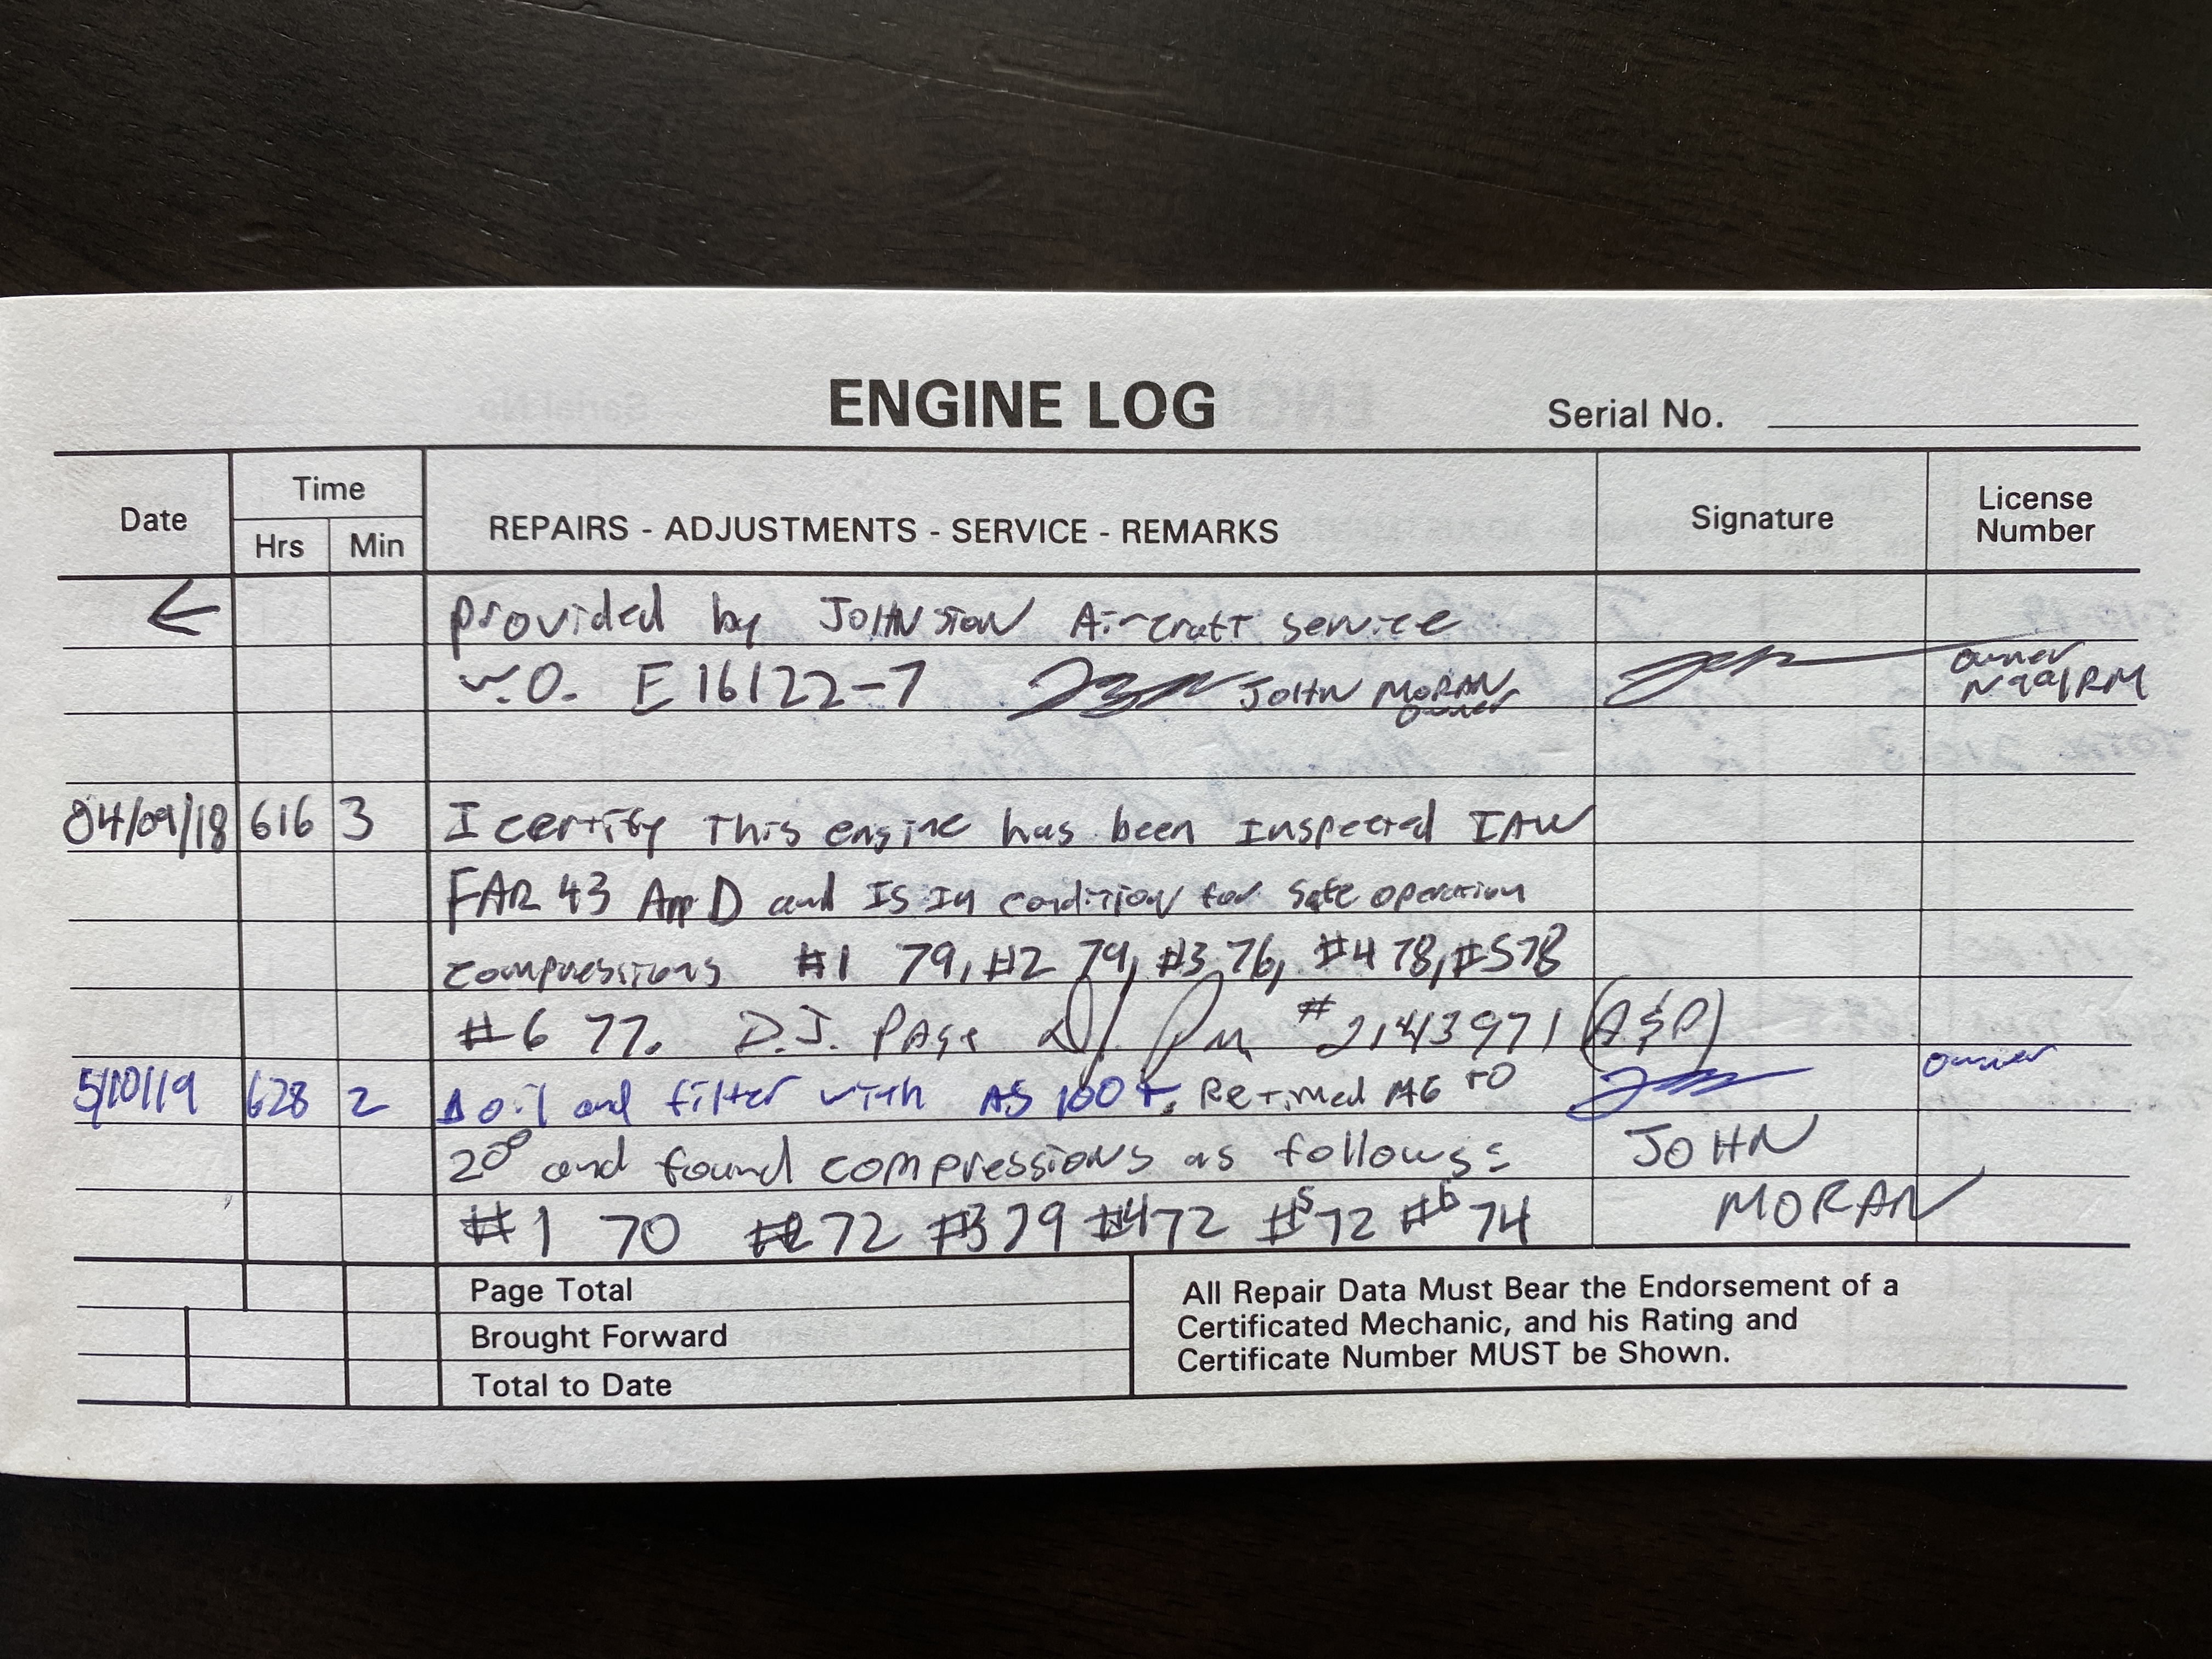 ENGINE LOG
Serial No.
Date
Time
Hrs Min
REPAIRS - ADJUSTMENTS - SERVICE - REMARKS
Signature
License
Number
← provided by JOHNSTON Aircraft service
W.O. E16122-7 JOHN MORAN owner owner N991RM
04/09/18 616 3 I certify This engine has been Inspected IAW
FAR 43 App D and IS IN condition for safe operation
compressions #1 79, #2 79, #3 76, #4 78, #5 78
#6 77. D.J. PAGE #2143971 (A&P)
5/10/19 628 2 Δ oil and filter with AS 100 +. Retimed MG to owner
20° and found compressions as follows: JOHN
#1 70 #2 72 #3 79 #4 72 #5 72 #6 74 MORAN
Page Total
Brought Forward
Total to Date
All Repair Data Must Bear the Endorsement of a
Certificated Mechanic, and his Rating and
Certificate Number MUST be Shown.